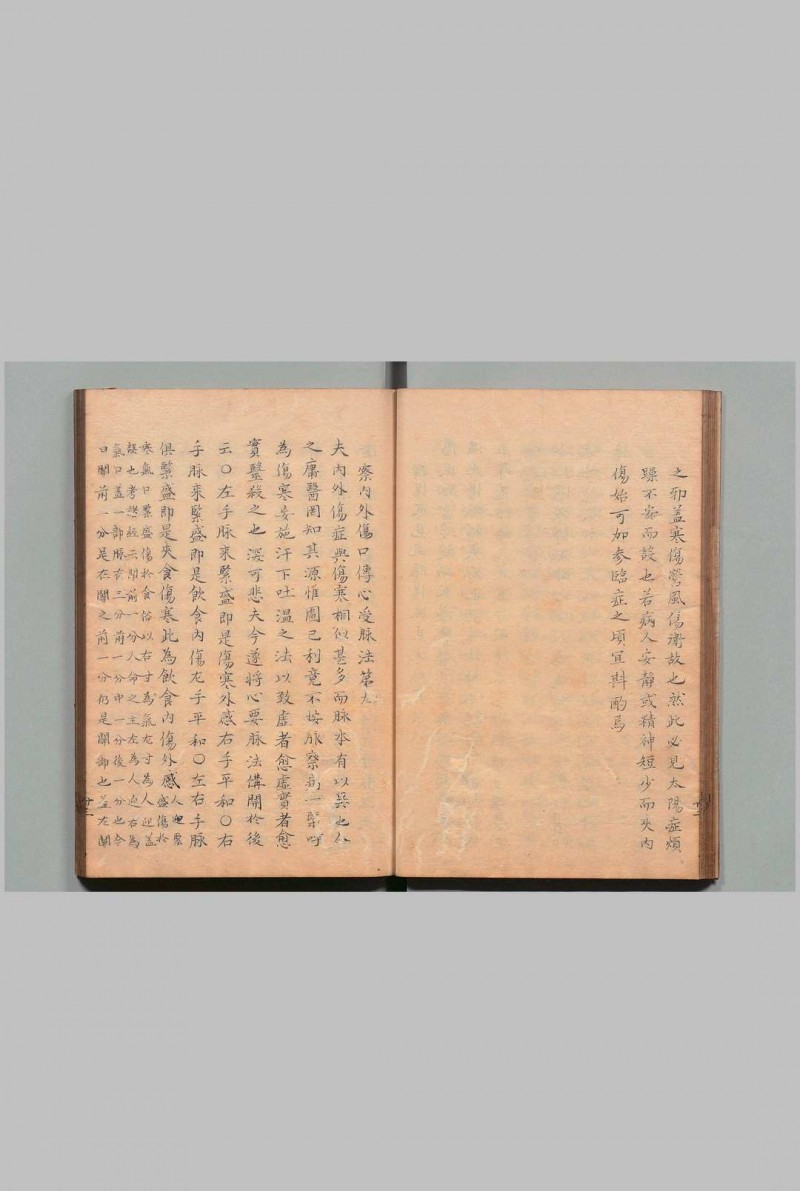 之邪蓋寒傷營風傷衛故也然此必見太陽症煩
躁不寧而設也若病人安靜或精神短少而夾內
傷始可加參臨症之頃宜斟酌焉
察內外傷口傳心受脉法第九
夫內外傷症與傷寒相似甚多而脉本有以異也今
之庸醫罔知其源惟圖己利竟不按脉察病一槩呼
為傷寒妄施汗下吐溫之法以致虛者愈虛實者愈
實醫殺之也深可悲夫今遂將心要脉法備開於後
云〇左手脉來緊盛即是傷寒外感右手平和〇右
手脉來緊盛即是飲食內傷左手平和〇左右手脉
俱緊盛即是夾食傷寒此為飲食內傷外感人迎緊盛傷於
寒氣口緊盛傷於食俗以右寸為氣左寸為人迎蓋
誤也考脉經云關前一分人命之主左為人迎右為
氣口蓋一部脉有三分前一分中一分後一分也今
曰關前一分是在關之前一分仍是關部也蓋左關